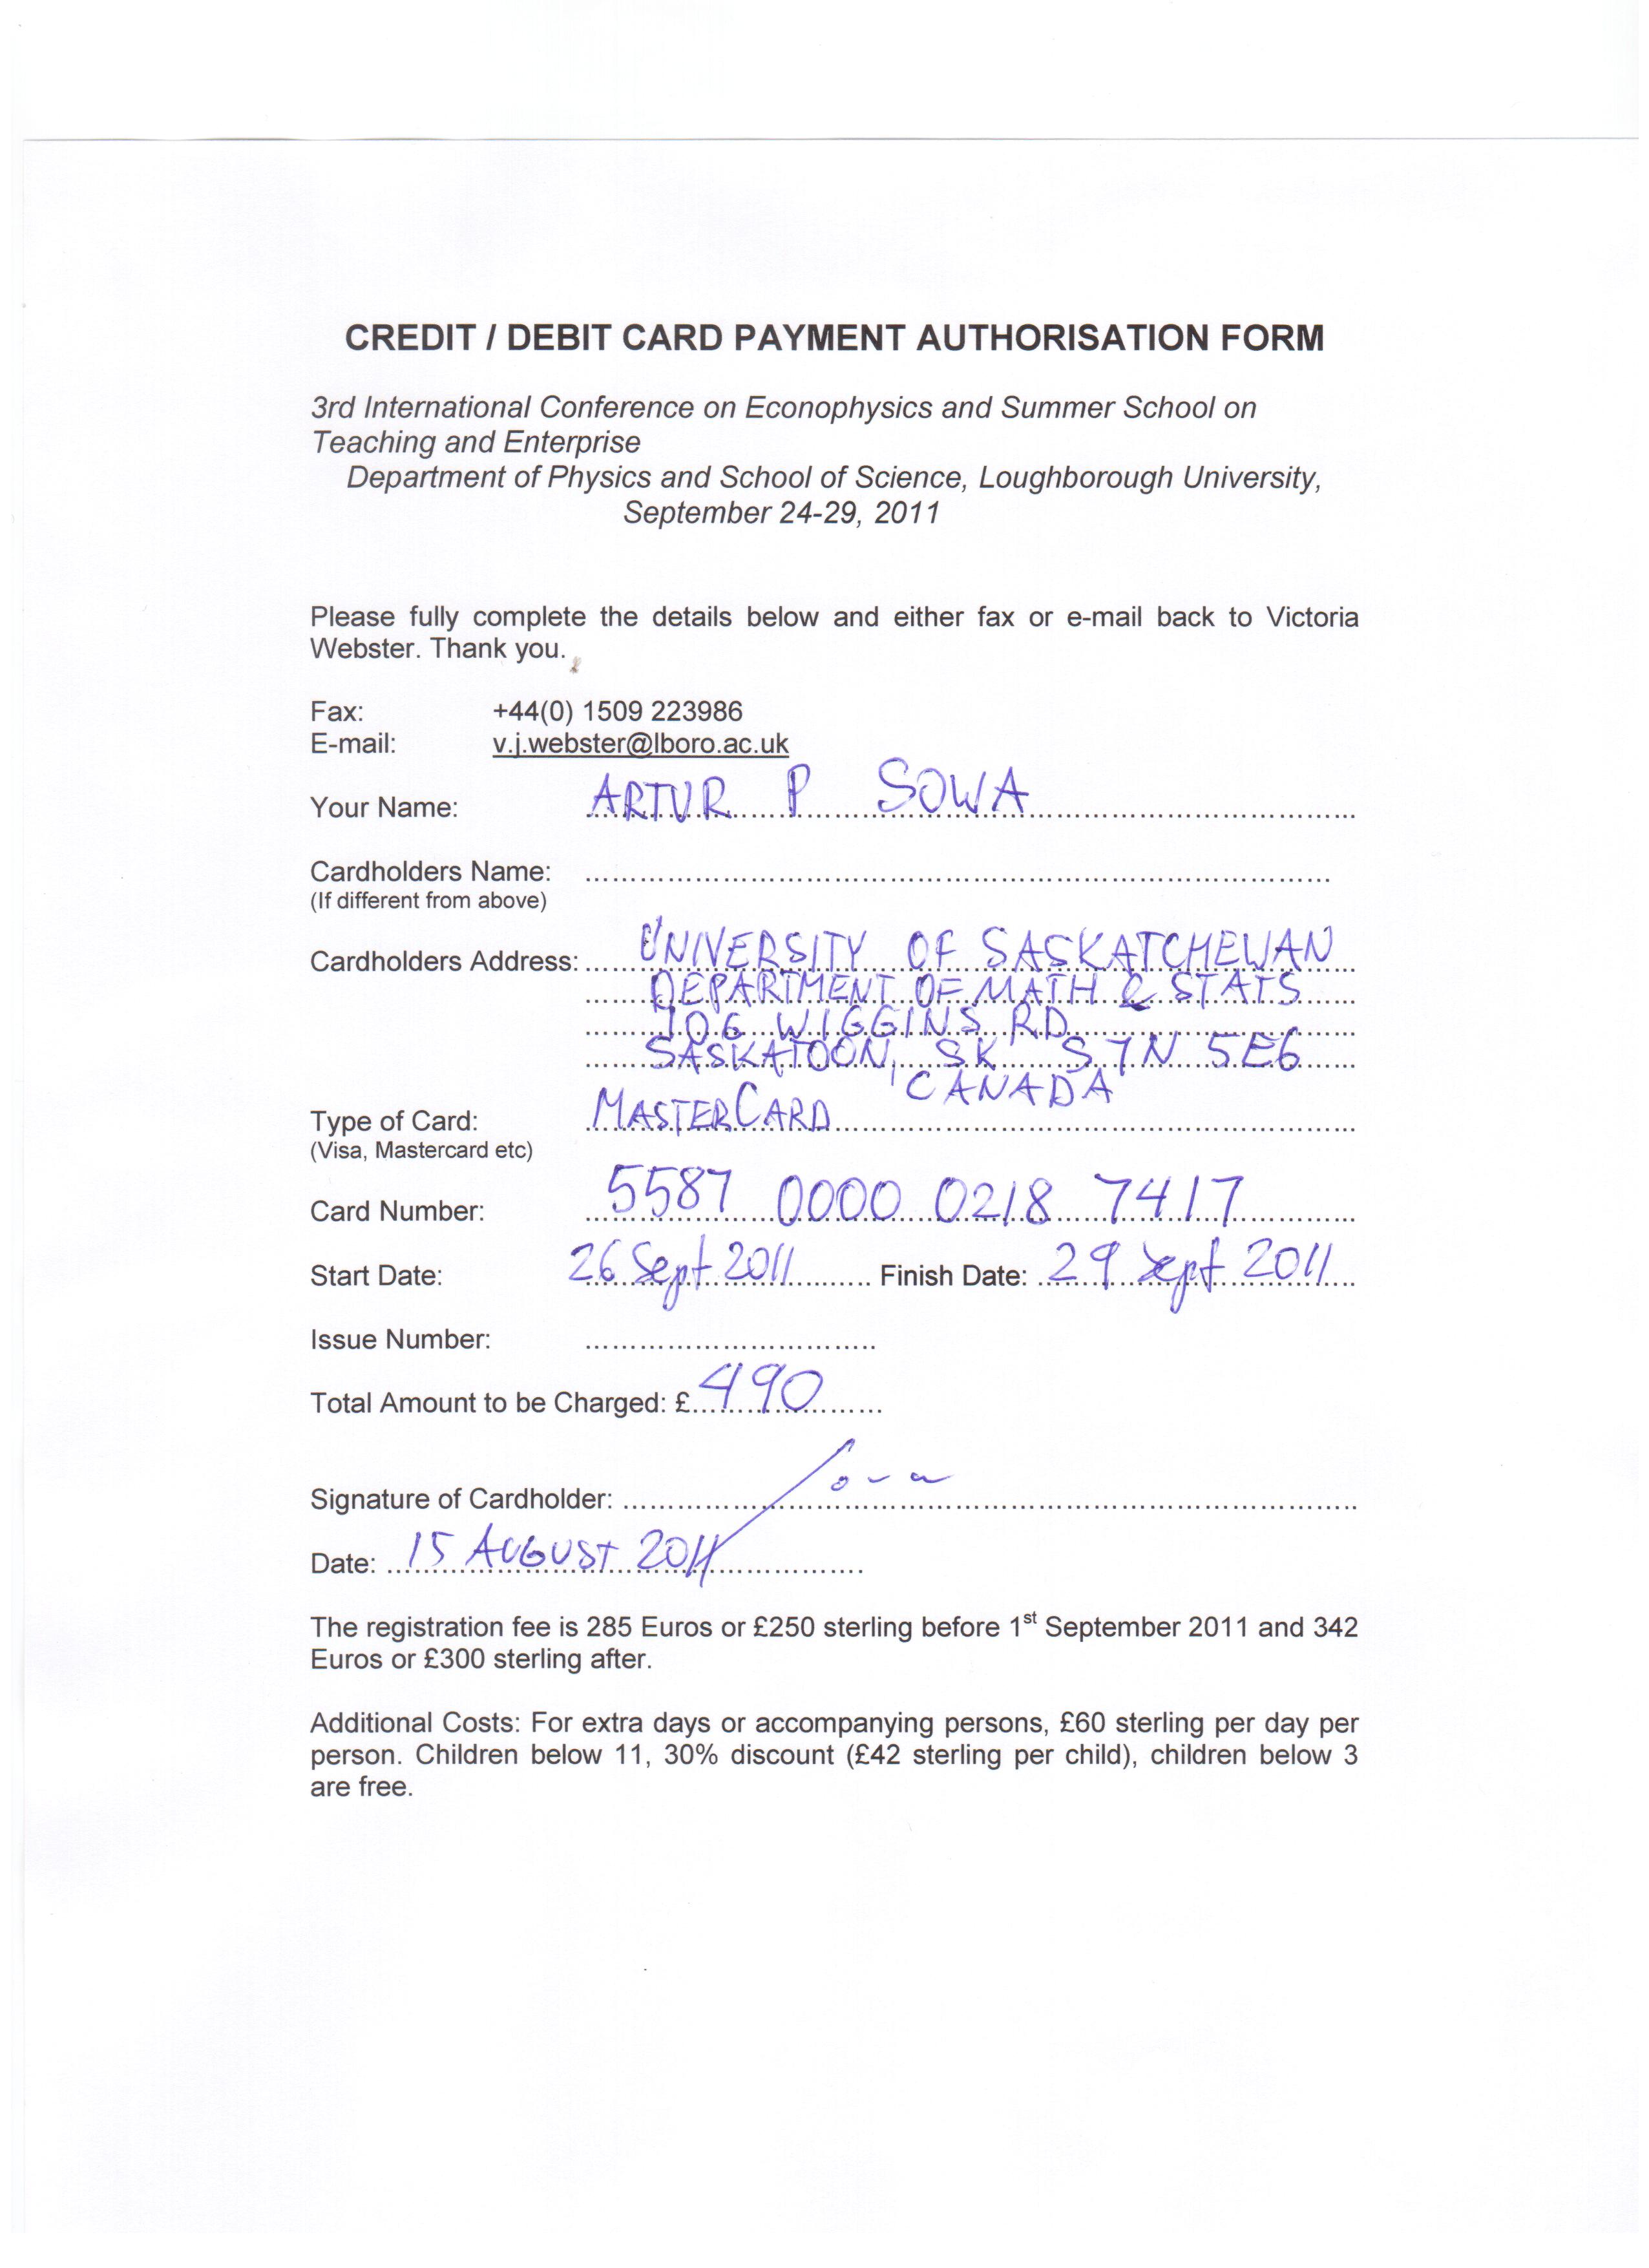 CREDIT / DEBIT CARD PAYMENT AUTHORISATION FORM
3rd International Conference on Econophysics and Summer School on
Teaching and Enterprise
Department of Physics and School of Science, Loughborough University,
September 24-29, 2011
Please fully complete the details below and either fax or e-mail back to Victoria
Webster. Thank you.
Fax: +44(0) 1509 223986
E-mail: v.j.webster@lboro.ac.uk
Your Name: ARTUR P SOWA
Cardholders Name:
(If different from above)
Cardholders Address: UNIVERSITY OF SASKATCHEWAN
DEPARTMENT OF MATH & STATS
106 WIGGINS RD
SASKATOON, SK S7N 5E6
CANADA
Type of Card: MASTERCARD
(Visa, Mastercard etc)
Card Number: 5587 0000 0218 7417
Start Date: 26 Sept 2011 Finish Date: 29 Sept 2011
Issue Number:
Total Amount to be Charged: £ 490
Signature of Cardholder: Sowa
Date: 15 AUGUST 2011
The registration fee is 285 Euros or £250 sterling before 1st September 2011 and 342
Euros or £300 sterling after.
Additional Costs: For extra days or accompanying persons, £60 sterling per day per
person. Children below 11, 30% discount (£42 sterling per child), children below 3
are free.